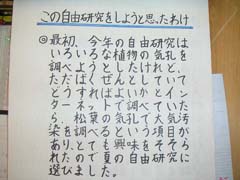 この自由研究をしようと思ったわけ
◎最初、今年の自由研究は
いろいろな植物の気孔を
調べようとしたけれど、
ただばくぜんとしていて
どうすればよいかとイン
ターネットで調べていた
ら、松葉の気孔で大気汚
染を調べるという項目が
あり、とても興味をそそら
れたので夏の自由研究に
選びました。